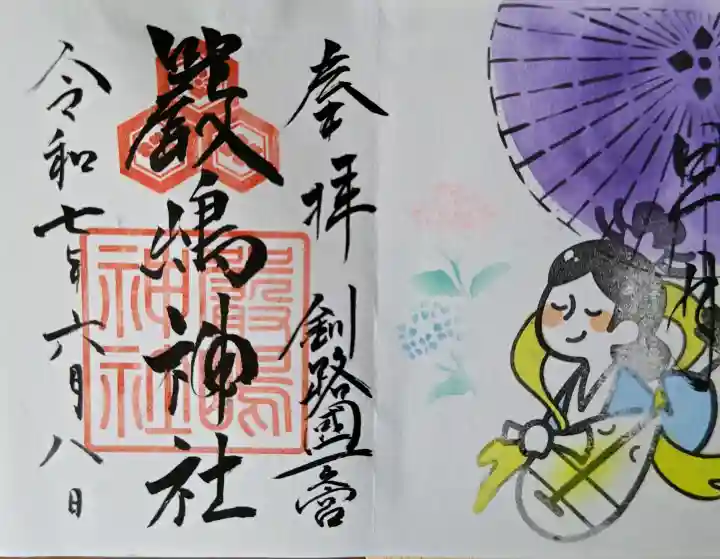 奉拝
釧路國一之宮
嚴嶋神社
嚴嶋神社
令和七年六月八日